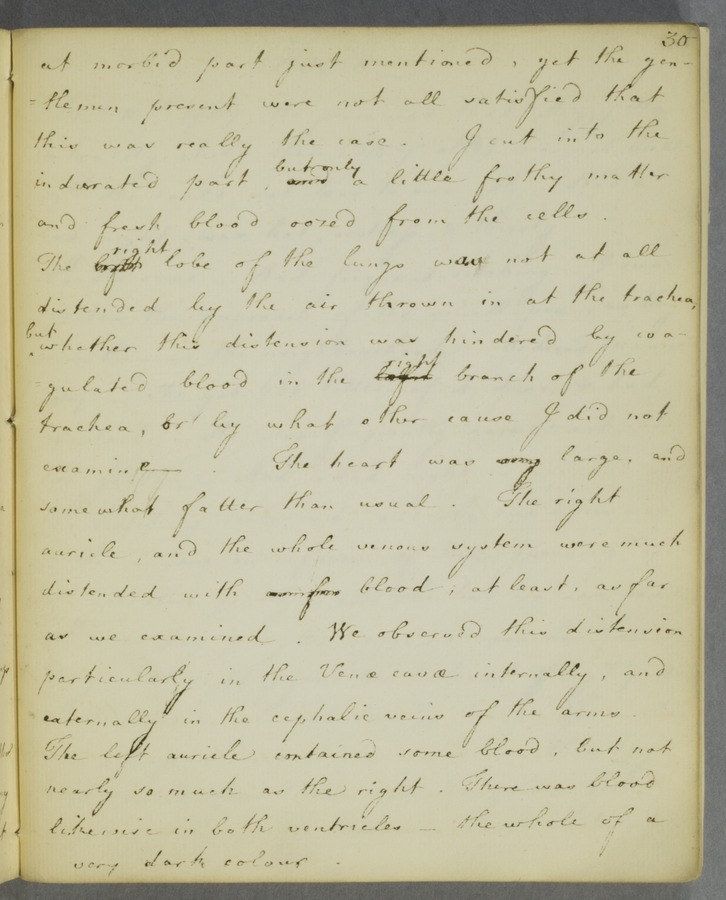 30
at morbid part just mentioned, yet the gen-
=tlemen present were not all satisfied that
this was really the case. I cut into the
indurated part, but only a little frothy matter
and fresh blood oozed from the cells.
The right lobe of the lungs was not at all
distended by the air thrown in at the trachea,
but whether this distension was hindered by coa-
=gulated blood in the right branch of the
trachea, or by what other cause I did not
examine. The heart was large, and
somewhat fatter than usual. The right
auricle, and the whole venous system were much
distended with blood; at least, as far
as we examined. We observed this distension
particularly in the Venæ cavæ internally, and
externally in the cephalic veins of the arms.
The left auricle contained some blood, but not
nearly so much as the right. There was blood
likewise in both ventricles – the whole of a
very dark colour.